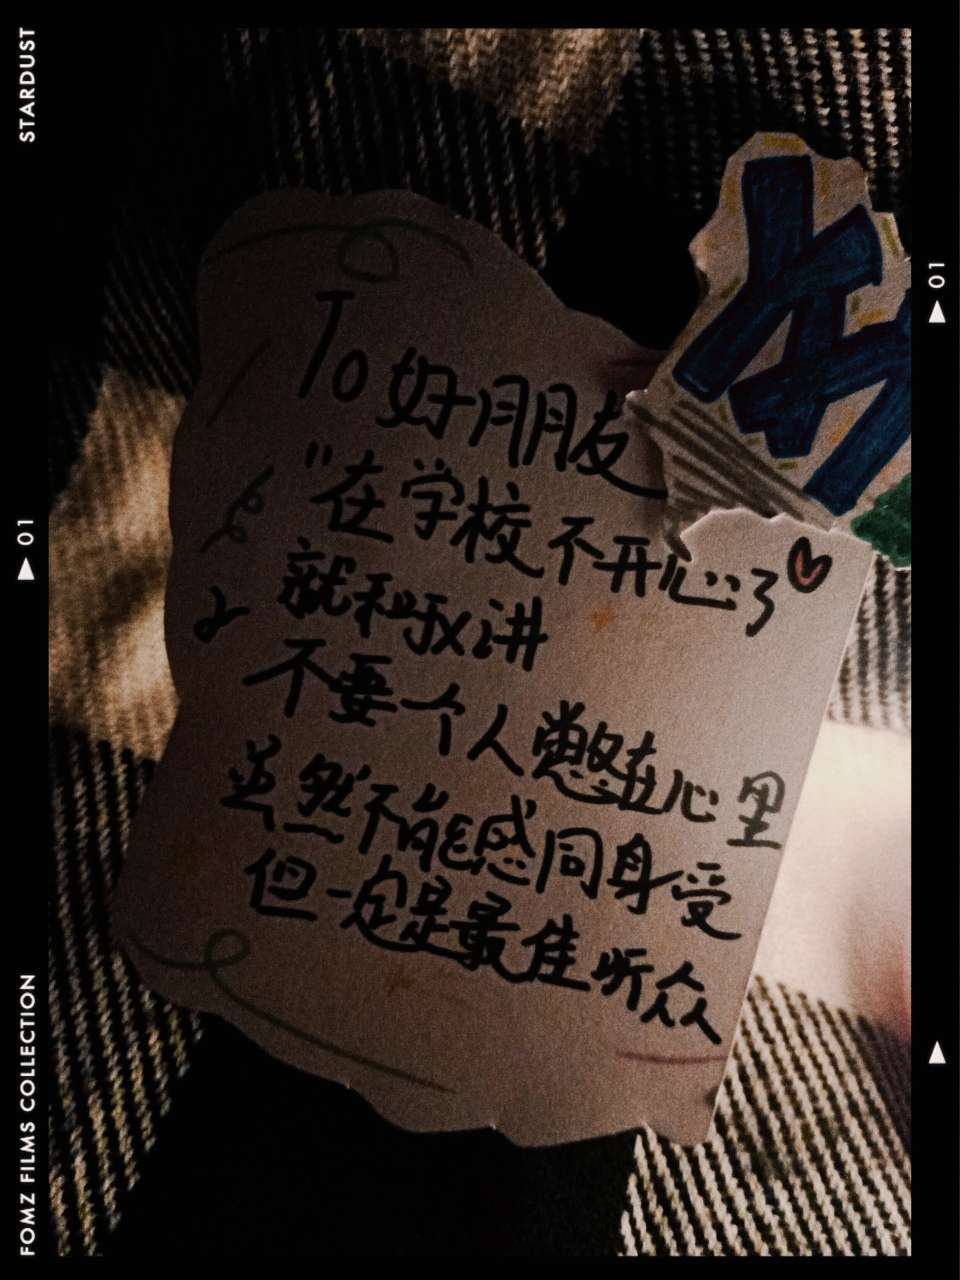 STARDUST
FOMZ FILMS COLLECTION
01
01
To 好朋友
"在学校不开心了
就和我讲
不要一个人憋在心里
虽然不能感同身受
但一定是最佳听众